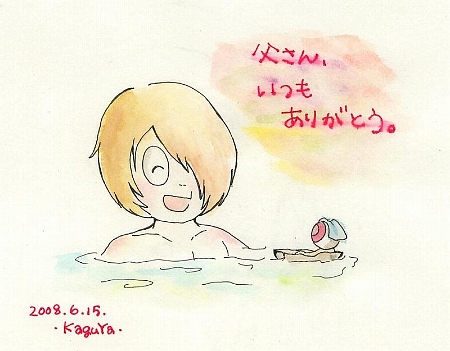 父さん、
いつも
ありがとう。
2008.6.15.
・Kaguya・